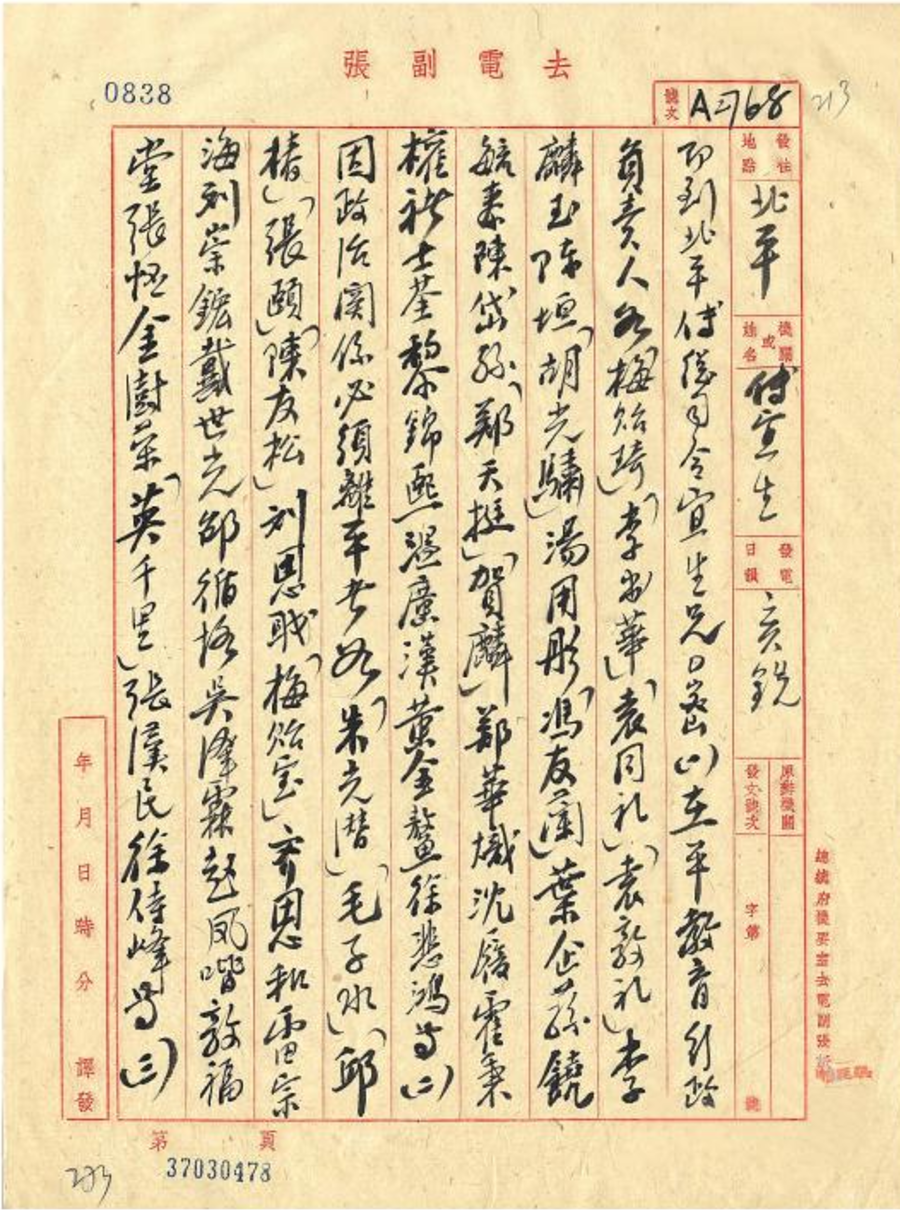 去電副張
0838
號次
A2768
213
發往地點
北平
機關或姓名
傅宜生
發電日韻
亥銑
原辦機關
發文號次
字第
號
即到北平傅總司令宜生兄○密(一)在平教育行政
負責人如梅貽琦「李書華」「袁同禮」「袁敦禮」李
麟玉陳垣「胡先驌」湯用彤「馮友蘭」葉企蓀饒
毓泰陳岱孫「鄭天挺」「賀麟」鄭華熾沈履霍秉
權褚士荃黎錦熙溫廣漢黃金鰲徐悲鴻等(二)
因政治關係必須離平者如「朱光潛」「毛子水」「邱
椿」「張頤」「陳友松」劉思職「梅貽寶」齊思和雷宗
海劉崇鋐戴世光邵循恪吳澤霖趙鳳喈敦福
堂張恆金澍榮「英千里」張漢民徐侍峰等(三)
總統府機要室去電副張紙
年月日時分譯發
第頁
37030478
213